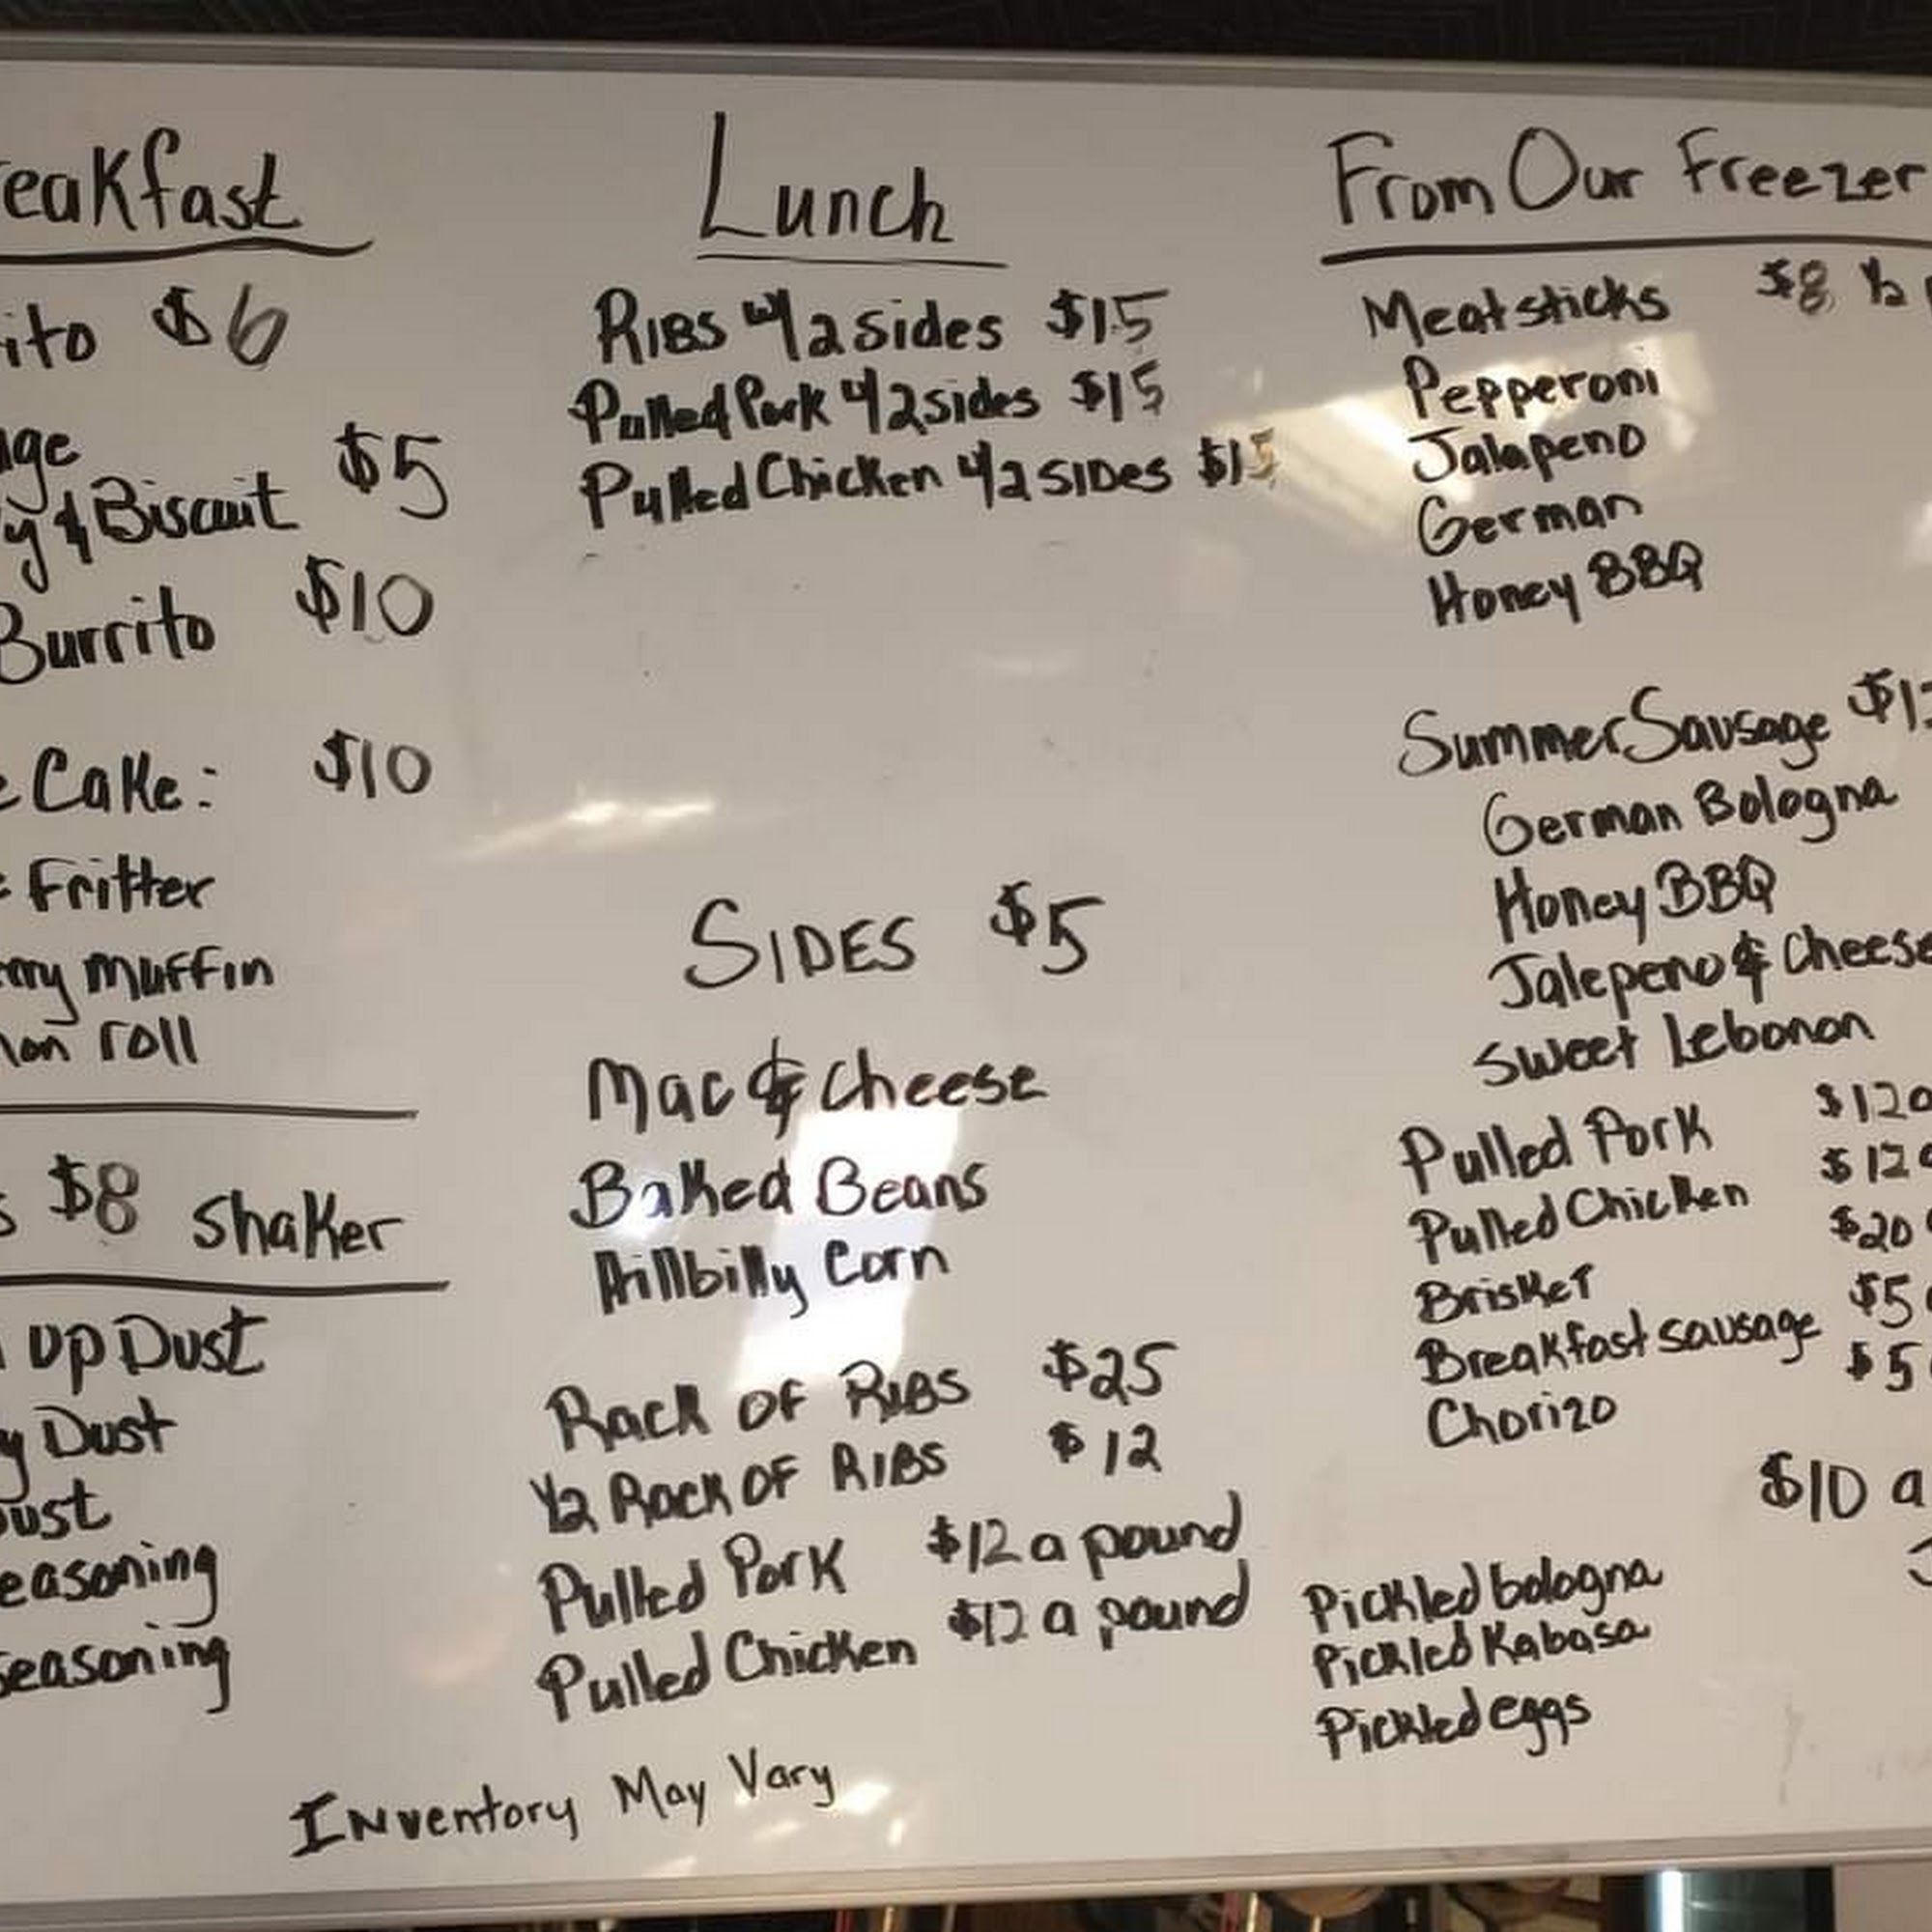 eakfast
ito $6
age
y & Biscuit $5
Burrito $10
e Cake: $10
Fritter
rry muffin
non roll
s $8 Shaker
up Dust
y Dust
ust
easoning
seasoning
Lunch
Ribs w/ 2 sides $15
Pulled Pork w/ 2 sides $15
Pulled Chicken w/ 2 SIDes $15
SIDES $5
Mac & Cheese
Baked Beans
Hillbilly Corn
Rack OF RIBS $25
1/2 Rack OF RIBS $12
Pulled Pork $12 a pound
Pulled Chicken $12 a pound
Inventory May Vary
From Our Freezer
Meatsticks $8 1/2
Pepperoni
Jalapeno
German
Honey BBQ
Summer Sausage $1
German Bologna
Honey BBQ
Jalepeno & Cheese
Sweet Lebonon
Pulled Pork $12 a
Pulled Chicken $12 a
Brisket $20
Breakfast sausage $5
Chorizo $5
$10 a
Pickled bologna
Pickled Kabasa
Pickled eggs